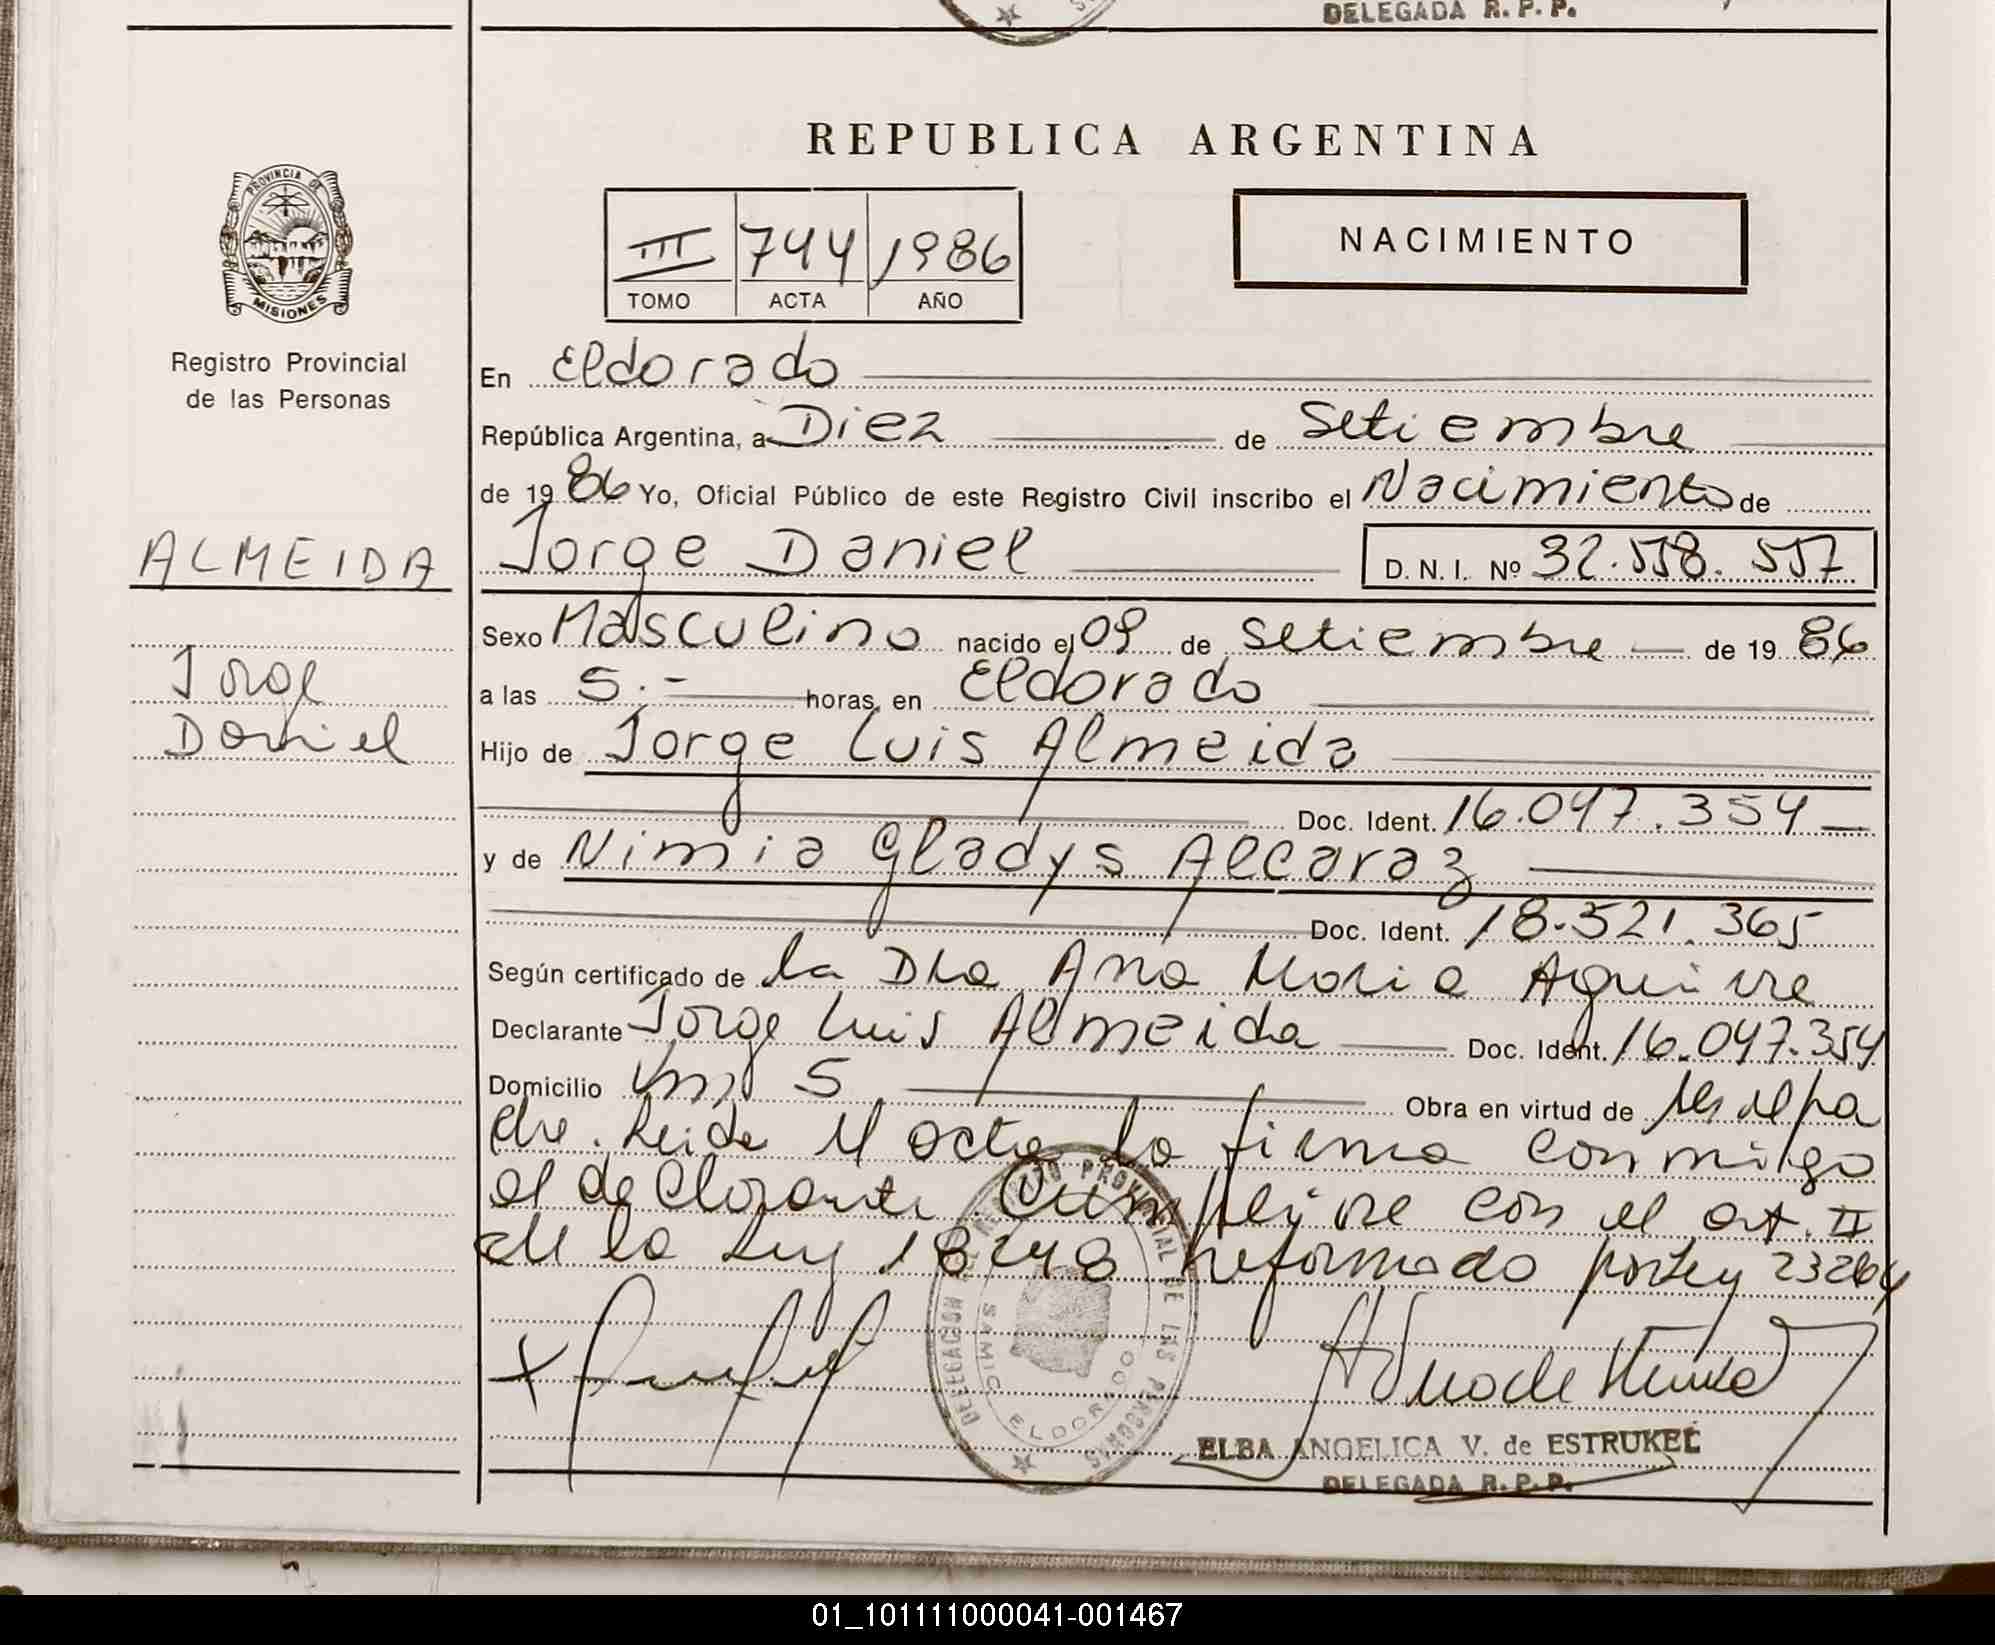 DELEGADA R. P. P.
REPUBLICA ARGENTINA
PROVINCIA DE
MISIONES
Registro Provincial
de las Personas
III 744 1986
TOMO ACTA AÑO
NACIMIENTO
En Eldorado
República Argentina, a Diez de Setiembre
de 1986 Yo, Oficial Público de este Registro Civil inscribo el Nacimiento de
ALMEIDA
Jorge Daniel
Jorge Daniel D. N. I. Nº 32.558.557
Sexo Masculino nacido el 09 de Setiembre de 1986
a las 5.- horas, en Eldorado
Hijo de Jorge Luis Almeida
Doc. Ident. 16.047.354
y de Nimia Gladys Alcaraz
Doc. Ident. 18.521.365
Según certificado de la Dra Ana Maria Aguirre
Declarante Jorge Luis Almeida Doc. Ident. 16.047.354
Domicilio Km 5 Obra en virtud de ser el pa
dre. Leida el acta la firma conmigo
el declarante. Cumplijre con el art. II
de la Ley 18248 reformado por Ley 23264
DELEGACION REGISTRO PROVINCIAL DE LAS PERSONAS
SAMIC ELDORADO
ELBA ANGELICA V. de ESTRUKEL
DELEGADA R. P. P.
01_101111000041-001467